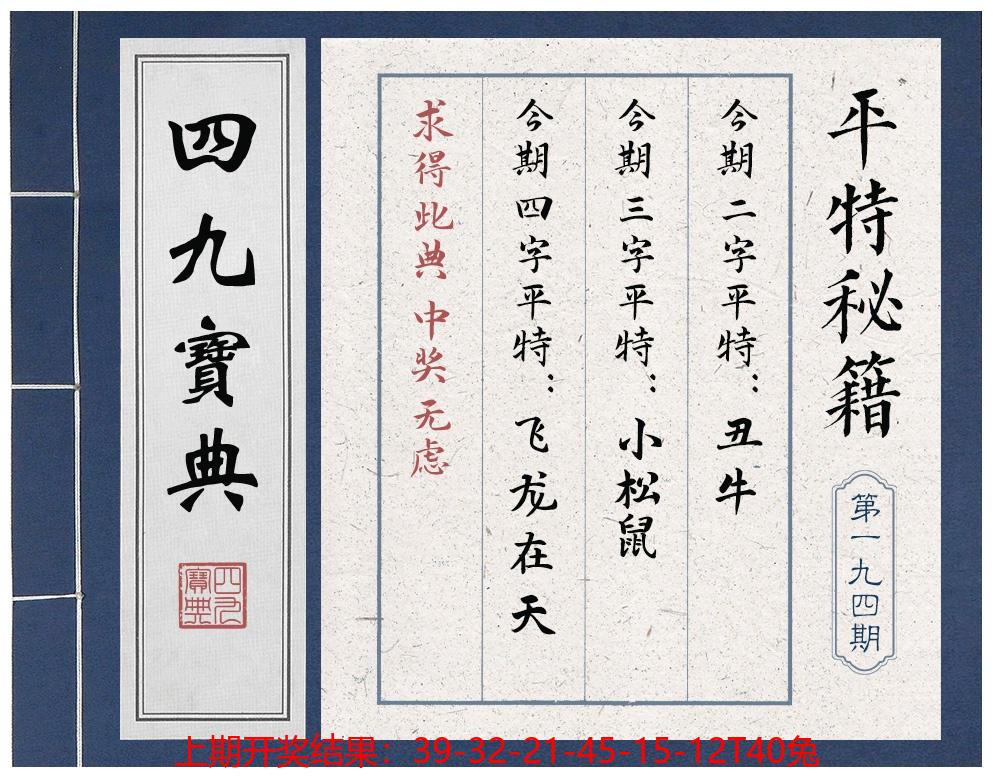 平特秘籍
第一九四期
今期二字平特：丑牛
今期三字平特：小松鼠
今期四字平特：飞龙在天
求得此典 中奖无虑
四九寶典
四九寶典
上期开奖结果：39-32-21-45-15-12T40兔